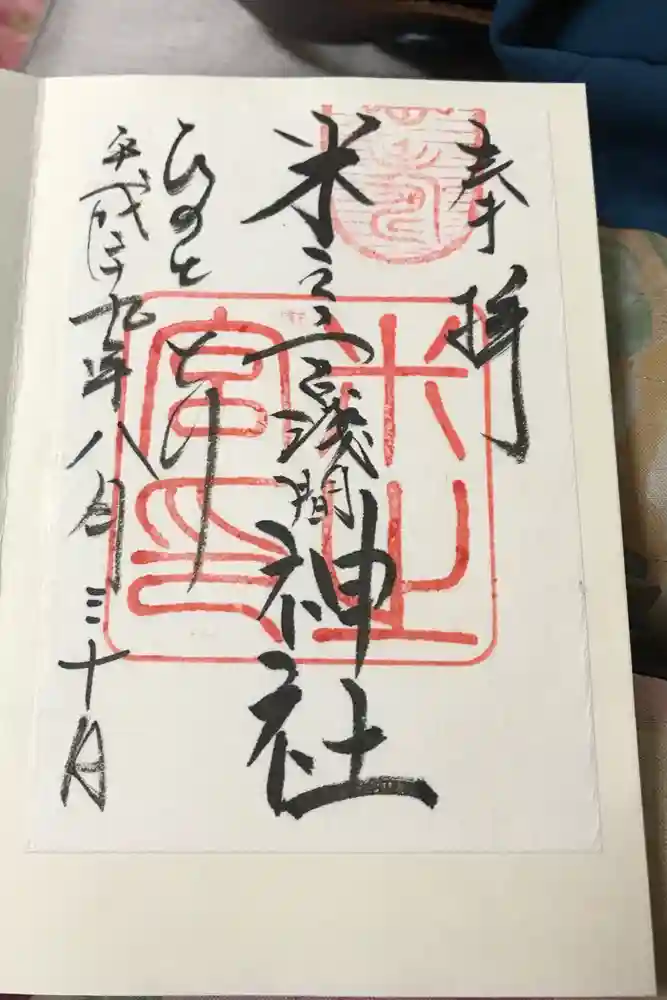 奉拝
米之宮淺間神社
ひのと とり
平成二十九年八月三十日
米之宮印